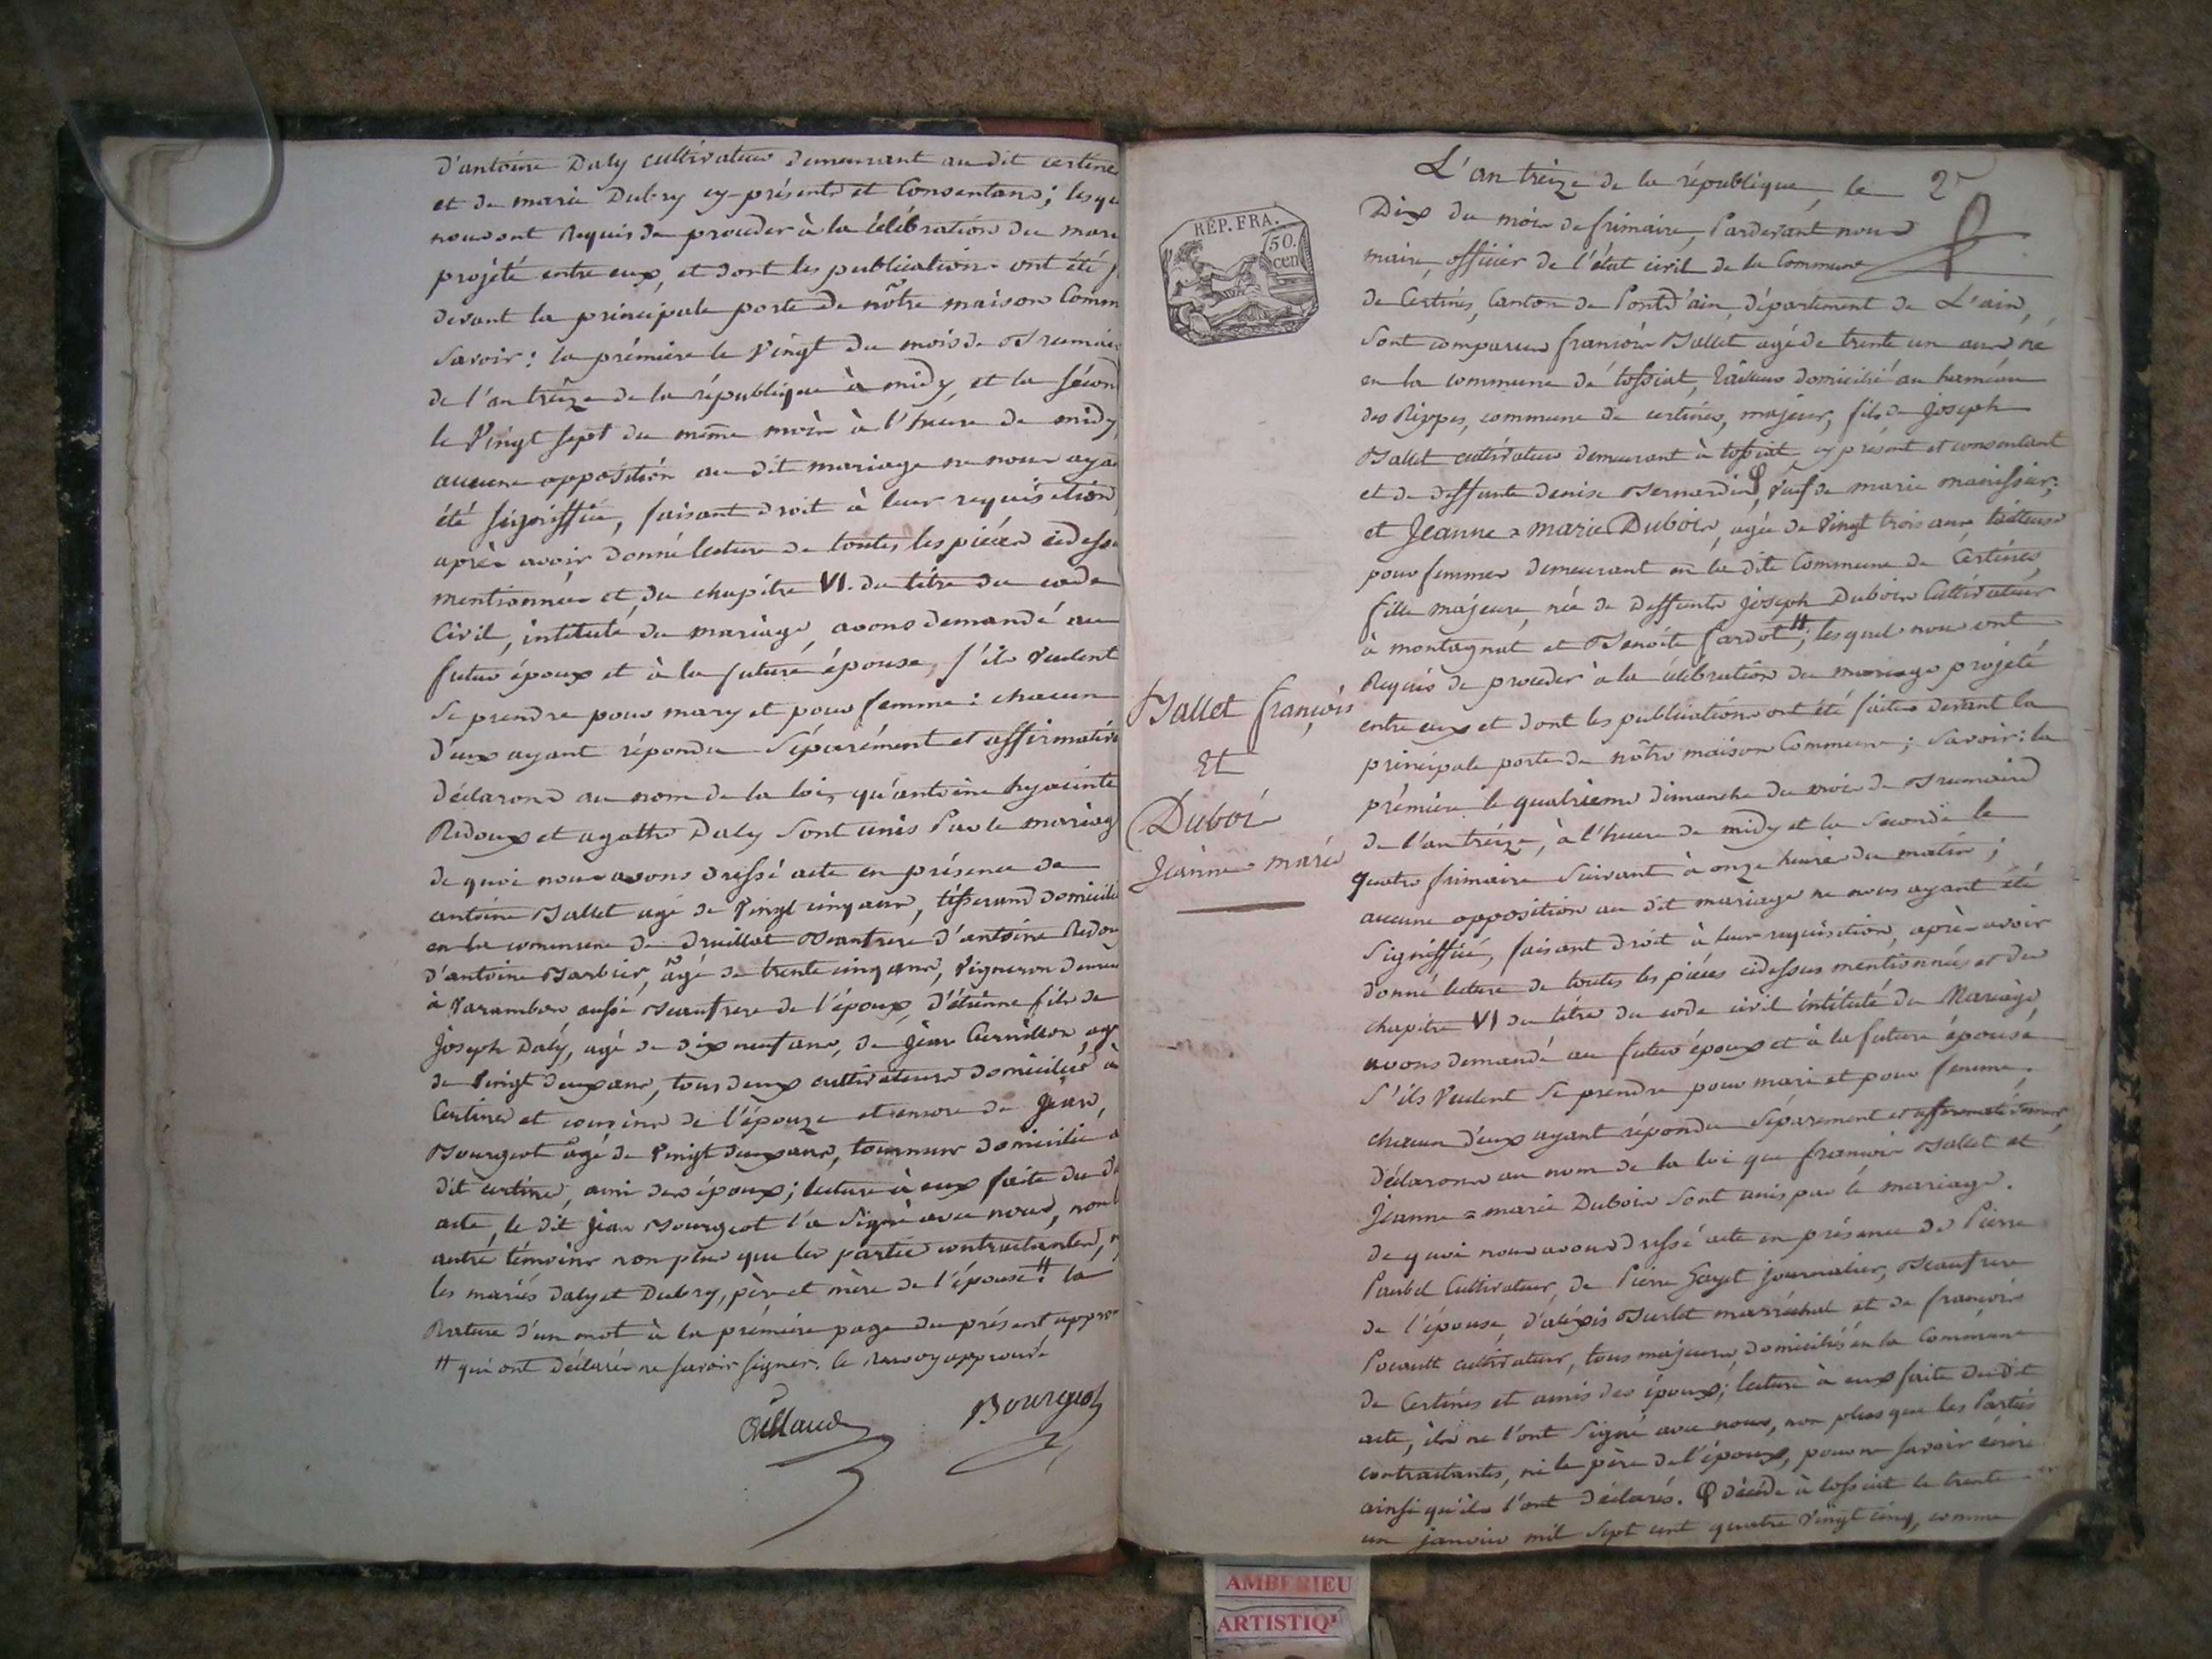 d'antoine Daly cultivateur demeurant au dit certine
et de marie Dubry cy présents et Consentans; lesqu
nous ont Requis de procéder à la célébration du mari
projeté entre eux, et dont les publications ont été
devant la principale porte de nôtre maison Comm
Savoir: la prémiere le Vingt du mois de Brumai
de l'an treize de la république à midy, et la sécon
le Vingt sept du même mois à l'heure de midy,
aucune opposition au dit mariage ne nous aya
été signiffiée, faisant droit à leur requisition,
après avoir donné lecture de toutes les piéces cidess
mentionnées et du chapitre VI. du titre du code
Civil, intitulé du mariage, avons demandé au
futur époux et à la future épouse, s'ils Veulent
Se prendre pour mary et pour femme: chacun
d'eux ayant répondu Séparément et affirmative
déclarons au nom de la loi, qu'antoine hyacinte
Redoux et agathe Daly Sont unis Par le mariag
de quoi nous avons dressé acte en présence de
antoine Ballet agé de Vingt cinq ans, tisserand domicilié
en la commune de druillat Beaufrere d'antoine Redou
d'antoine Barbier, âgé de trente cinq ans, Vigneron demeu
à Varambon aussi Beaufrere de l'époux, d'étienne fils de
Joseph Daly, agé de dix neuf ans, de Jean agé
de Vingt deux ans, tous deux cultivateurs domiciliés à
Certines et cousins de l'épouze et encore de Jean,
Bourgeot âgé de Vingt deux ans, tourneur domicilié a
dit certines, ami des époux; lecture à eux faite du d
acte, le dit Jean Bourgeot l'a Signé avec nous, non l
autre témoins non plus que les parties contractantes, n
les mariés Daly et Dubry, père et mère de l'épouse. # la
Rature d'un mot à la prémiére page du présent appro
# qui ont déclarés ne savoir signer. le renvoy approuvé
Bourgeot
L'an treize de la république, le 2
Dix du mois de frimaire, Pardevant nous
maire, officier de l'état civil de la Commune
RÉP. FRA.
50. cen
de Certines, Canton de Pontd'ain, département de L'ain,
Sont comparus françois Ballet agé de trente un ans né
en la commune de tossiat, domicilié au haméau
des Rippes, commune de certines, majeur, fils de Joseph
Ballet cultivateur demeurant à tossiat cy présent et consentant
et de deffunte denise Bernardin φ, Veuf de marie
et Jeanne=marie Dubois, agée de Vingt trois ans tailleuse
pour femmes demeurant en la dite Commune de Certines,
fille majeure, née de deffunts joséph Dubois Cultivateur
à montagnat et Benoite fardot #; lesquels nous ont
Requis de proceder à la célébration du mariage projeté
entre eux et dont les publications ont été faites devant la
principale porte de nôtre maison Commune; Savoir: la
prémiere le quatrieme dimanche du mois de Brumaire
de l'an treize, à l'heure de midy et la Seconde le
quatre frimaire Suivant à onze heures du matin;
aucune opposition au dit mariage ne nous ayant été
Signiffiée, faisant droit à leur requisition, après avoir
donné lecture de toutes les piéces cidessus mentionnées et du
chapitre VI du titre du code civil intitulé du Mariage,
avons demandé au futur époux et à la future épouse
S'ils Veulent Se prendre pour mari et pour femme,
chacun d'eux ayant répondu Séparement et affirmativement,
déclarons au nom de la loi que françois Ballet et
Jeanne=marie Dubois Sont unis par le mariage.
de quoi nous avons dressé acte en présence de Pierre
Cultivateur, de Pierre Gayet journalier, Beaufrere
de l'épouse, d'aléxis Burlet marréchal et de françois
cultivateur, tous majeurs, domiciliés en la Commune
de Certines et amis des époux; lecture à eux faite du dit
acte, ils ne l'ont Signé avec nous, non plus que les Parties
contractantes, ni le père de l'époux, pour ne savoir écrire
ainsi qu'ils l'ont déclarés. φ décédé à tossiat le trente
un janvier mil Sept cent quatre Vingt cinq, comme
Ballet françois
Et
Duboi
Jeanne marie
AMBERIEU
ARTISTIQ